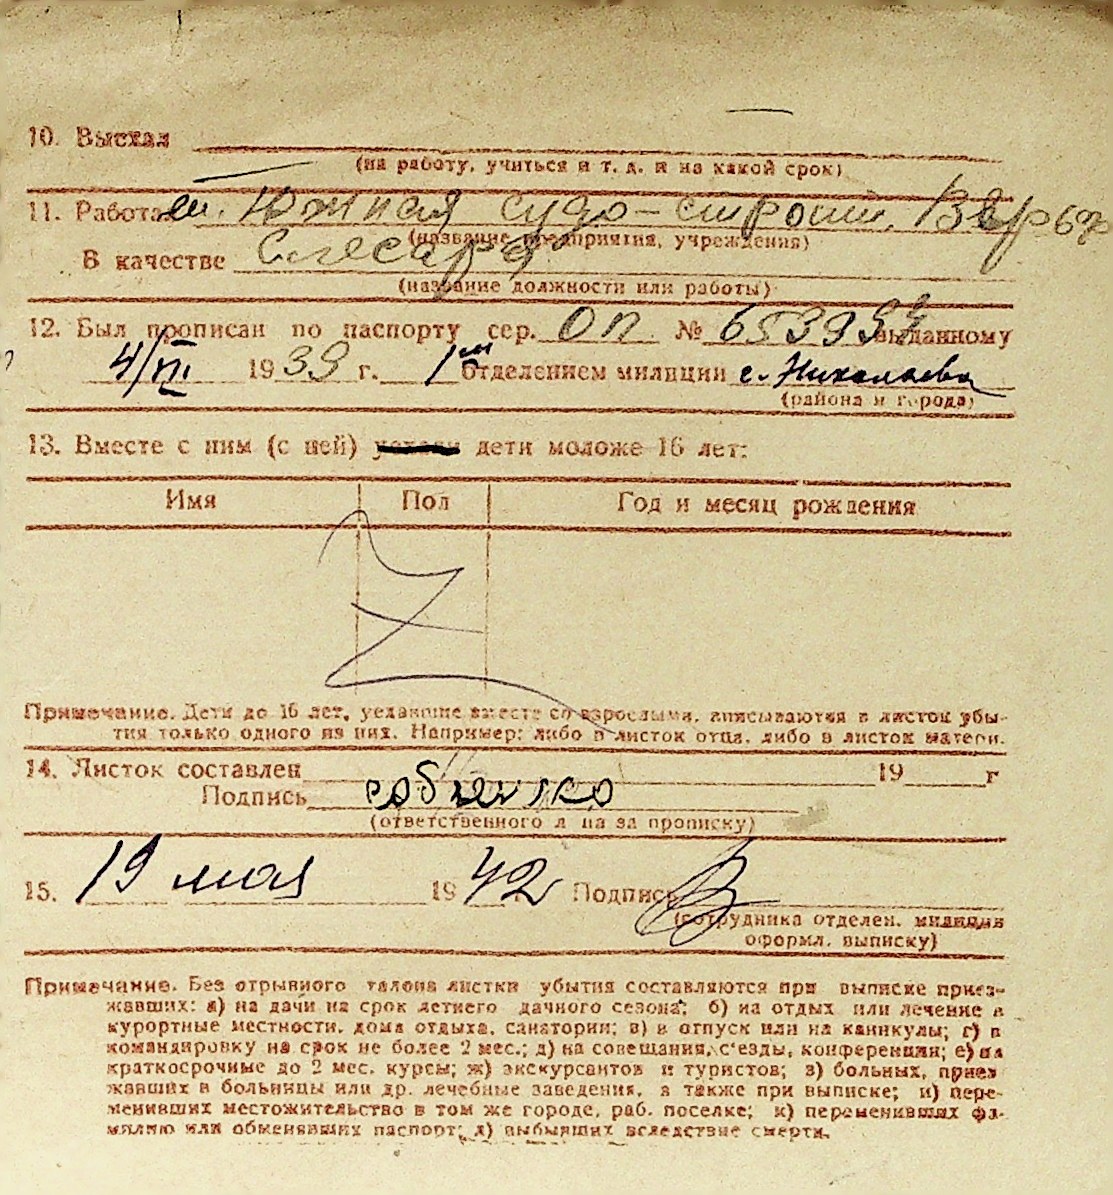 10. Выехал
(на работу, учиться и т. д. и на какой срок)
11. Работал ст. Южная судо-строит. Верфь
(название предприятия, учреждения)
В качестве Слесаря
(название должности или работы)
12. Был прописан по паспорту сер. ОП № 653957 выданному
4/III 1939 г. 1ым отделением милиции г. Николаева
(района и города)
13. Вместе с ним (с ней) дети моложе 16 лет:
Имя Пол Год и месяц рождения
Примечание. Дети до 16 лет, уехавшие вместе со взрослыми, вписываются в листок убы-
тия только одного из них. Например: либо в листок отца, либо в листок матери.
14. Листок составлен 19 г
Подпись
(ответственного л ца за прописку)
15. 19 мая 1942 Подпись
(сотрудника отделен. милиции
оформл. выписку)
Примечание. Без отрывного талона листки убытия составляются при выписке приез-
жавших: а) на дачи на срок летнего дачного сезона; б) на отдых или лечение в
курортные местности, дома отдыха, санатории; в) в отпуск или на каникулы; г) в
командировку на срок не более 2 мес.; д) на совещания, с'езды, конференции; е) на
краткосрочные до 2 мес. курсы; ж) экскурсантов и туристов; з) больных, приез
жавших в больницы или др. лечебные заведения, а также при выписке; и) пере-
менивших местожительство в том же городе, раб. поселке; к) переменивших фа-
милию или обменявших паспорт; л) выбывших вследствие смерти.